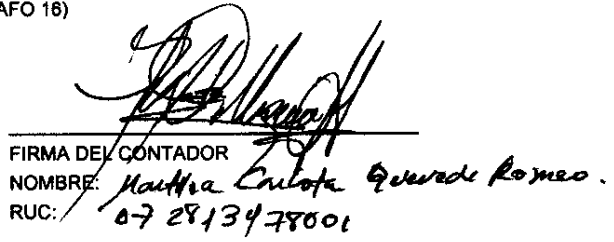 AFO 16)
FIRMA DEL CONTADOR
NOMBRE: Martha Carlota Quevedo Romeo.
RUC: 072813478001